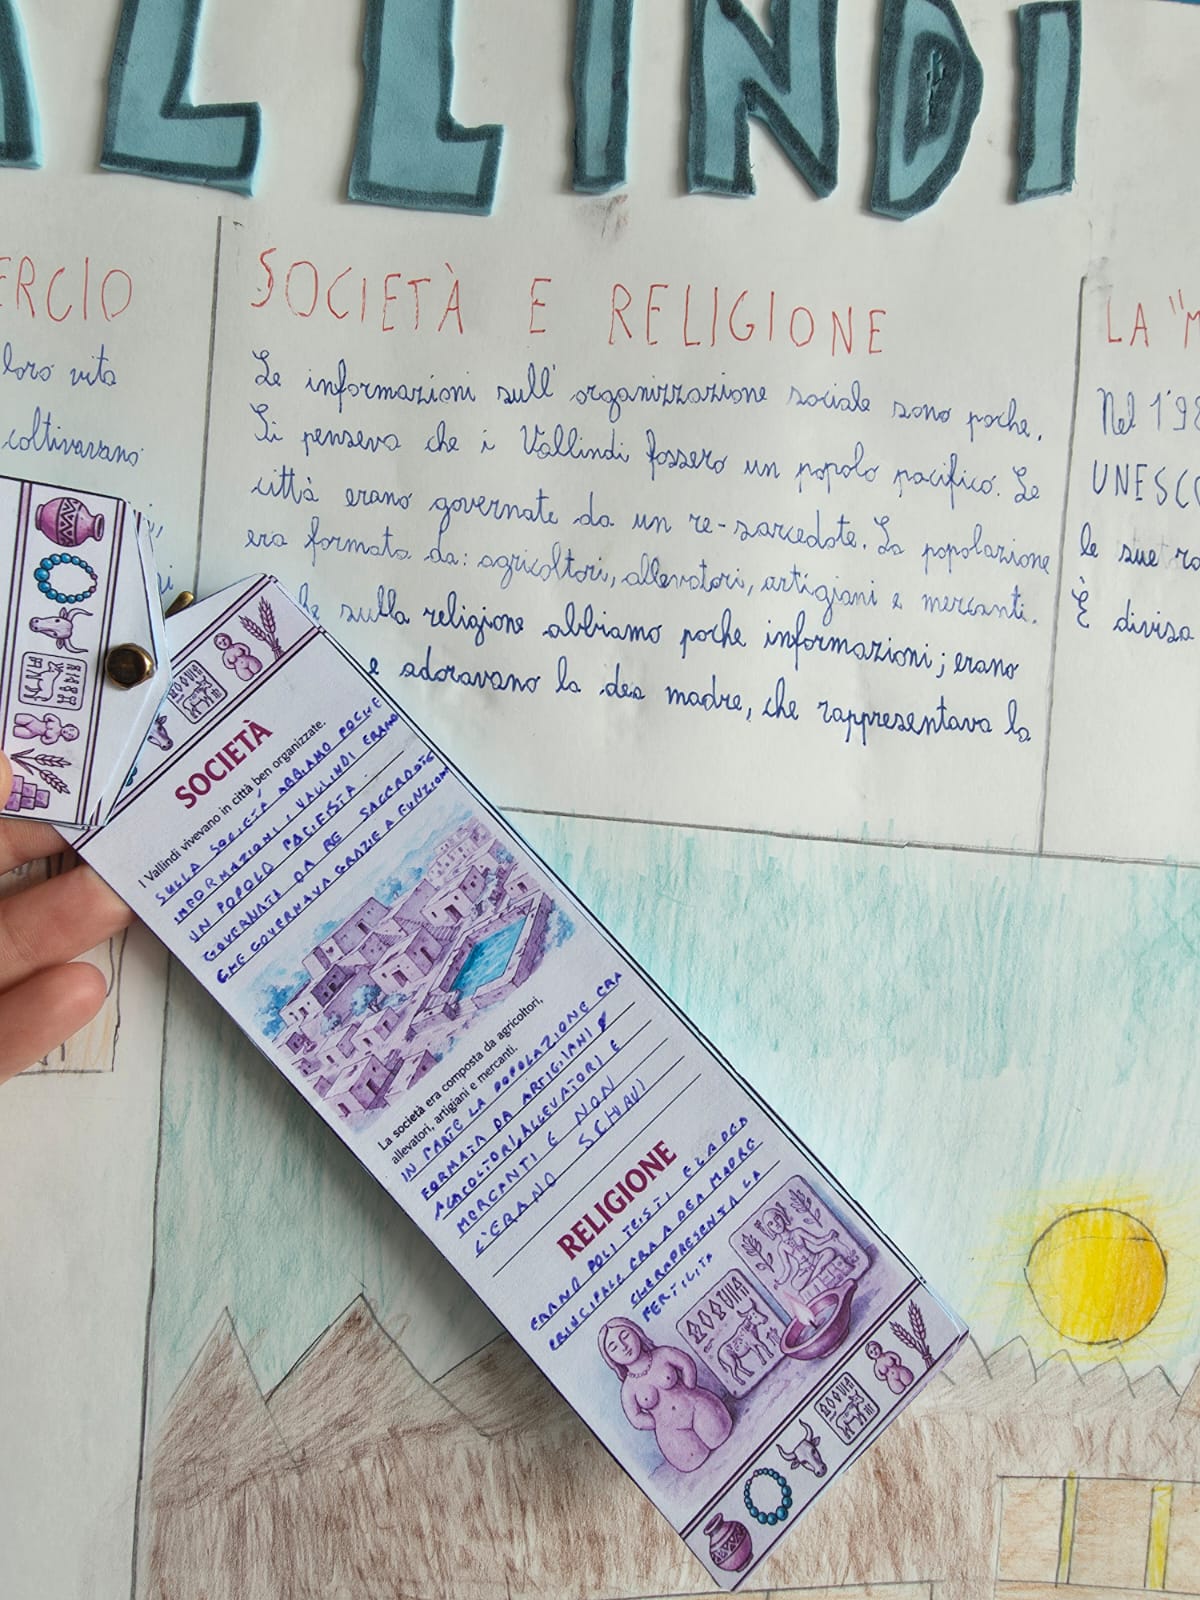 ALLINDI
ERCIO
loro vita
coltivavano
SOCIETÀ E RELIGIONE
Le informazioni sull'organizzazione sociale sono poche.
Si penseva che i Vallindi fossero un popolo pacifico. Le
città erano governate da un re-sarcedote. La popolazione
era formata da: agricoltori, allevatori, artigiani e mercanti.
sulla religione abbiamo poche informazioni; erano
e adoravano la dea madre, che rappresentava la
LA "M
Nel 198
UNESCO
le sue ro
È divisa
SOCIETÀ
I Vallindi vivevano in città ben organizzate.
SULLA SOCIETÁ ABBIAMO POCHE
INFORMAZIONI I VALLINDI ERANO
UN POPOLO PACIFISTA.
GOVERNATI DA RE SACCERDOTE
CHE GOVERNAVA GRAZIE A FUNZIONI
La società era composta da agricoltori,
allevatori, artigiani e mercanti.
IN PARTE LA POPOLAZIONE ERA
FORMATA DA ARTIGIANI
AGRICOLTORI, ALLEVATORI E
MERCANTI E NON
C'ERANO SCHIAVI
RELIGIONE
ERANO POLI TEISTI E LA DEA
PRINCIPALE ERA A DEA MADRE
CHE RAPRESENTA LA
FERTILITA